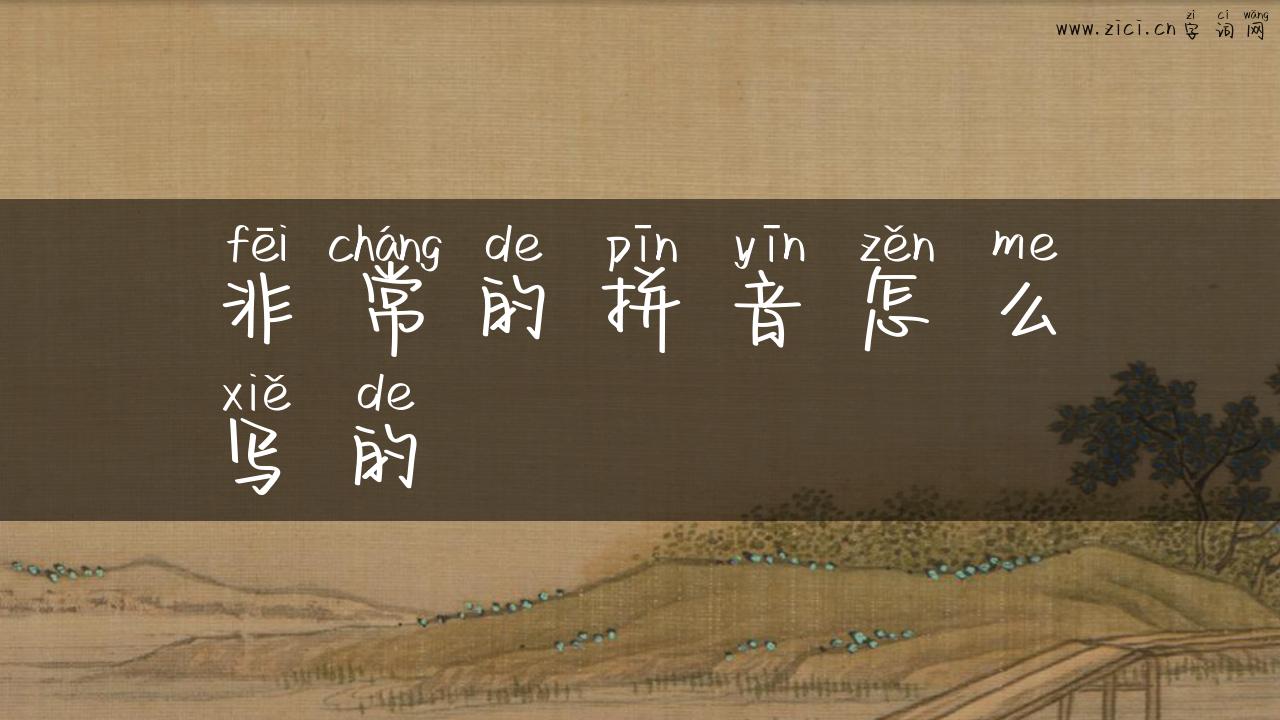 zì cí wǎng
www.zici.cn 字 词 网
fēi cháng de pīn yīn zěn me
非 常 的 拼 音 怎 么
xiě de
写 的